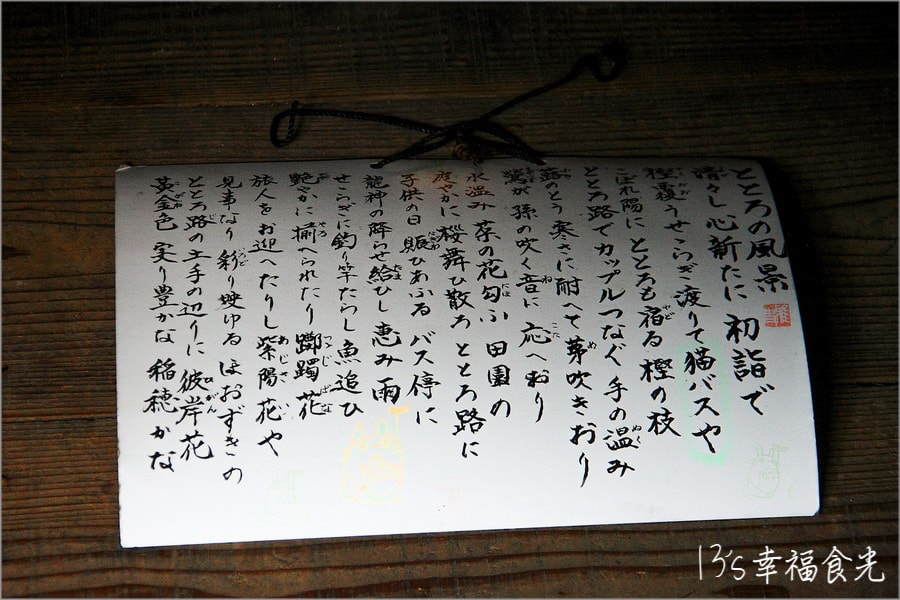 ととろの風景
清々し 心新たに 初詣で
樫覆うせらぎ渡りて猫バスや
こぼれ陽に ととろも宿る 樫の枝
ととろ路でカップルつなぐ 手の温み
路のとう 寒さに耐へて 芽吹きおり
我が孫の吹く音に 応へおり
水温み 菜の花匂ふ 田園の
艶やかに桜舞ひ散ろ ととろ路に
子供の日 賑ひあふる バス停に
龍神の降らせ給ひし 恵み雨
せらぎに釣り竿たらし 魚追ひ
艶やかに揃へられたり 躑躅花
旅人をお迎へたりし 紫陽花や
見事なり 彩り映ゆる ほおずきの
ととろ路の土手の辺りに 彼岸花
黄金色 実り豊かな 稲穂かな
13's幸福食光